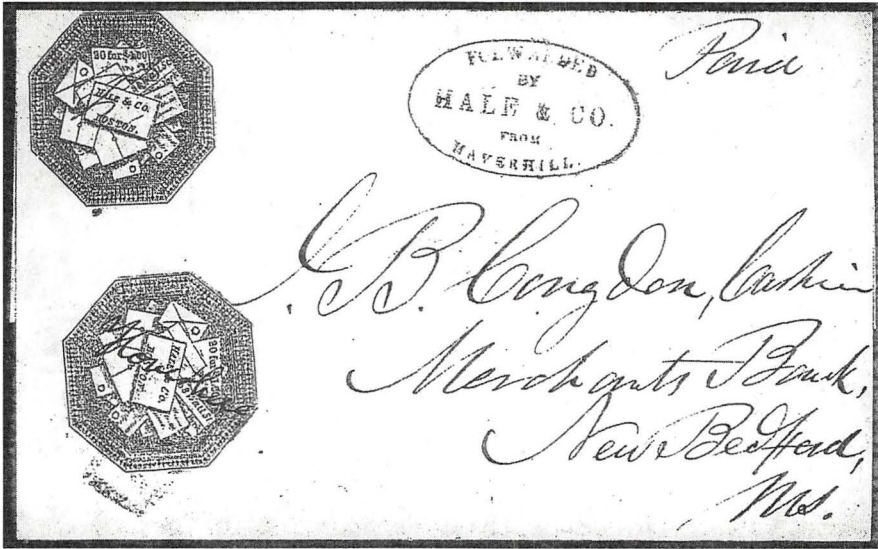 20 for $1.00
HALE & CO.
BOSTON.
FORWARDED
BY
HALE & CO.
FROM
HAVERHILL.
Paid
J. B. Congdon, Cashier
Merchants Bank,
New Bedford,
Ms.
20 for $1
HALE & CO.
BOSTON.